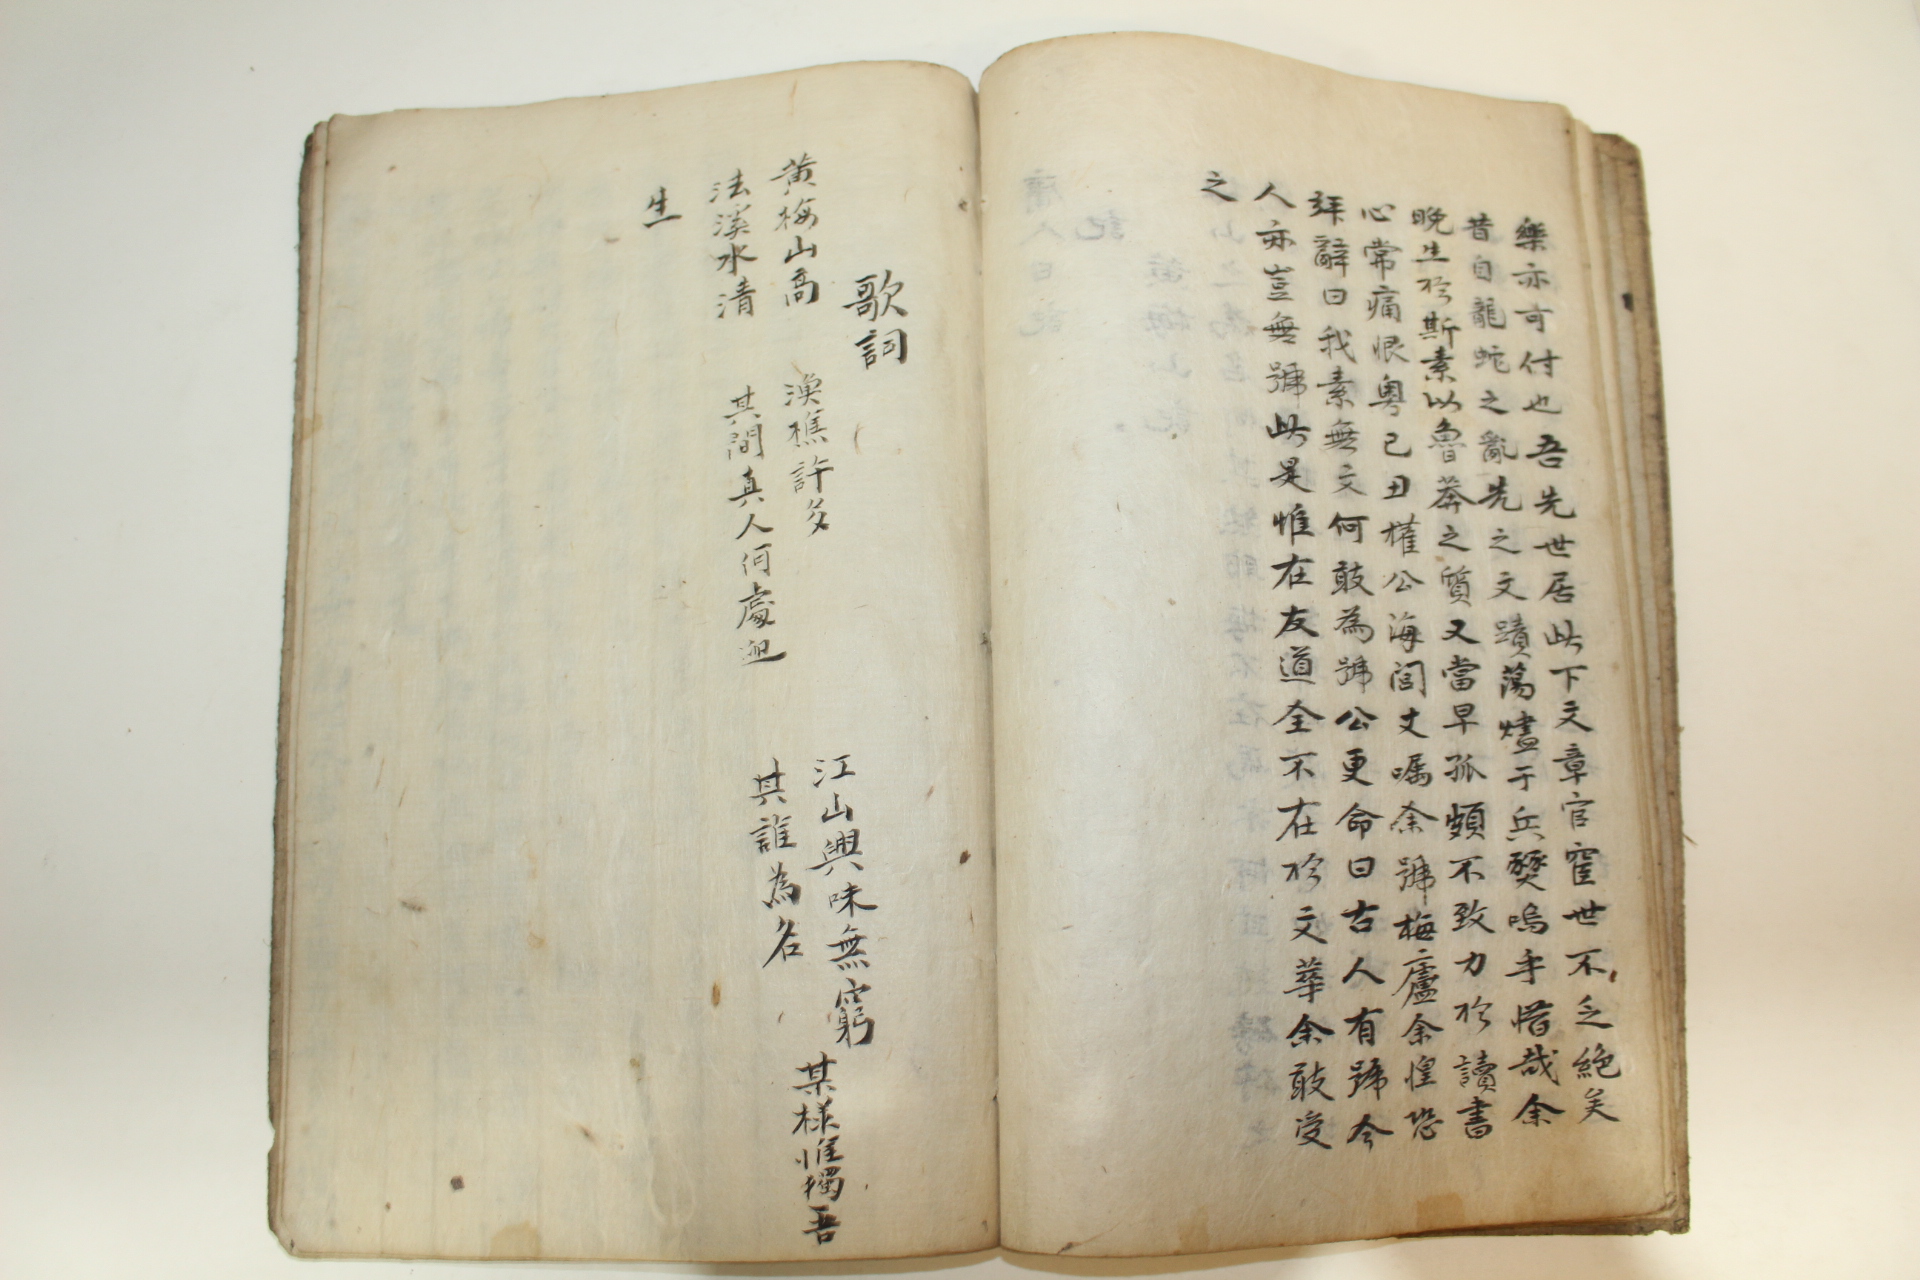 樂亦可付也吾先世居此下文章官宦世不乏絶矣
昔自龍蛇之亂先之文蹟蕩燼于兵燹嗚乎惜哉余
晩生於斯素以魯莽之質又當早孤頗不致力於讀書
心常痛恨粤己丑權公海閭丈嘱余號梅廬余惶恐
拜辭曰我素無文何敢為號公更命曰古人有號今
人亦豈無號此是惟在友道全不在於文華余敢受
之
歌詞
黄梅山高 漁樵許多 江山興味無窮
法溪水清 其間真人何處 其誰為名 某樣惟獨吾
生